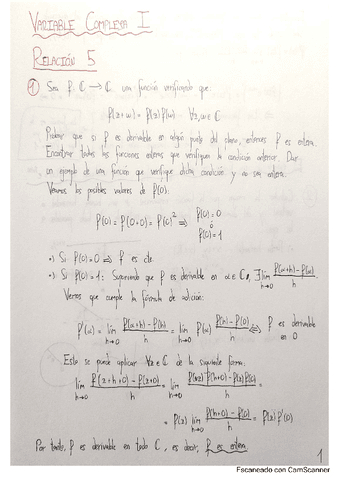 VARIABLE COMPLEJA I
RELACIÓN 5
① Sea f: ℂ → ℂ una función verificando que:
f(z+w) = f(z)f(w) ∀z,w∈ℂ
Probar que si f es derivable en algún punto del plano, entonces f es entera.
Encontrar todas las funciones enteras que verifiquen la condición anterior. Dar
un ejemplo de una función que verifique dicha condición y no sea entera.
Veamos los posibles valores de f(0):
f(0) = f(0+0) = f(0)² ⟹ f(0)=0
ó
f(0)=1
•) Si f(0)=0 ⟹ f es cte
•) Si f(0)=1: Suponiendo que f es derivable en α∈ℂ, ∃ lim h→0 (f(α+h)-f(α))/h
Vemos que cumple la fórmula de adición:
f'(α) = lim h→0 (f(α+h)-f(α))/h = lim h→0 f(α) (f(h)-f(0))/h ⟺ f es derivable
en 0
Esto se puede aplicar ∀z∈ℂ de la siguiente forma:
lim h→0 (f(z+h+0)-f(z+0))/h = lim h→0 (f(z)f(h+0)-f(z)f(0))/h =
= f(z) lim h→0 (f(h+0)-f(0))/h = f(z)f'(0)
Por tanto, f es derivable en todo ℂ, es decir, f es entera.
1
Escaneado con CamScanner